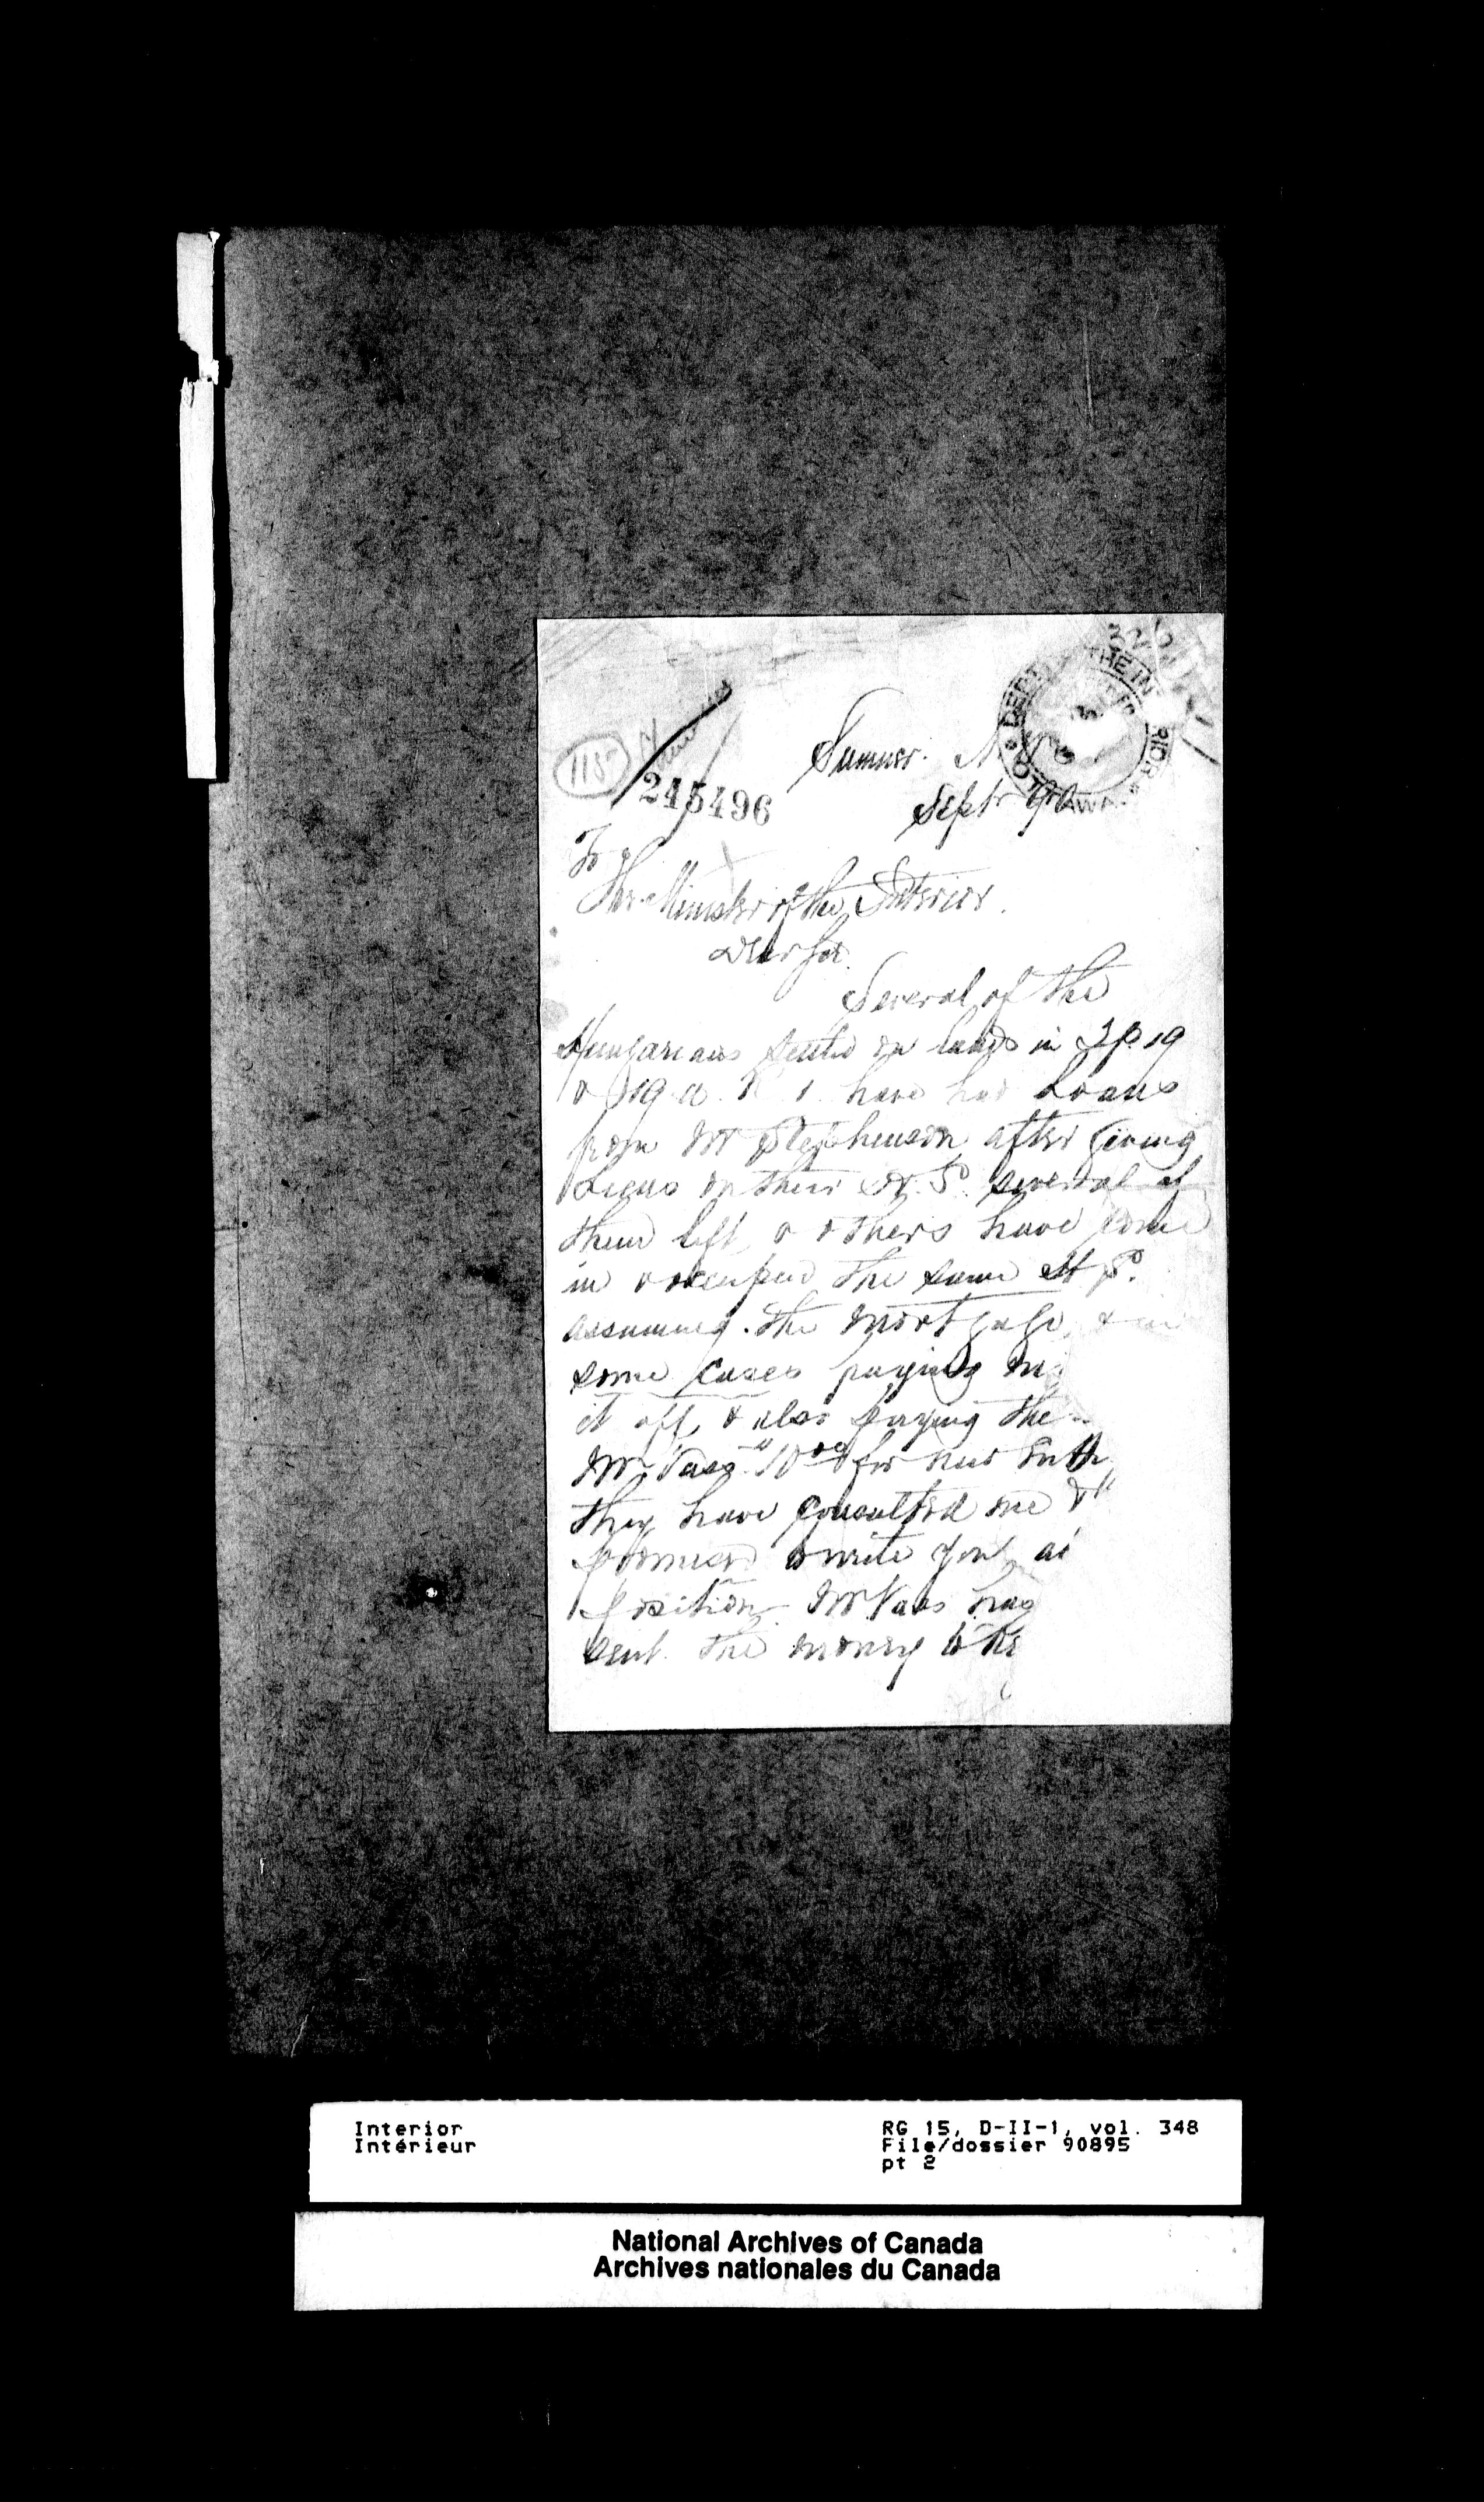 1135
245496
Sumner. N
Septr 9
To
The Minister of the Interior.
Dear Sir.
Several of the
Hungarians settled on lands in Tp. 19
& 19 a. R 1. have had Loans
from Mr Stephenson after giving
Liens on their H. S. several of
them left, & others have come
in & occupied the same H S.
assuming. the mortgage, & in
some cases paying
it off, & also paying the
Mr Vass $10 00 for new
they have consulted me &
promised to write you
position Mr Vass has
sent. the money to the
Interior
Intérieur
RG 15, D-II-1, vol. 348
File/dossier 90895
pt 2
National Archives of Canada
Archives nationales du Canada